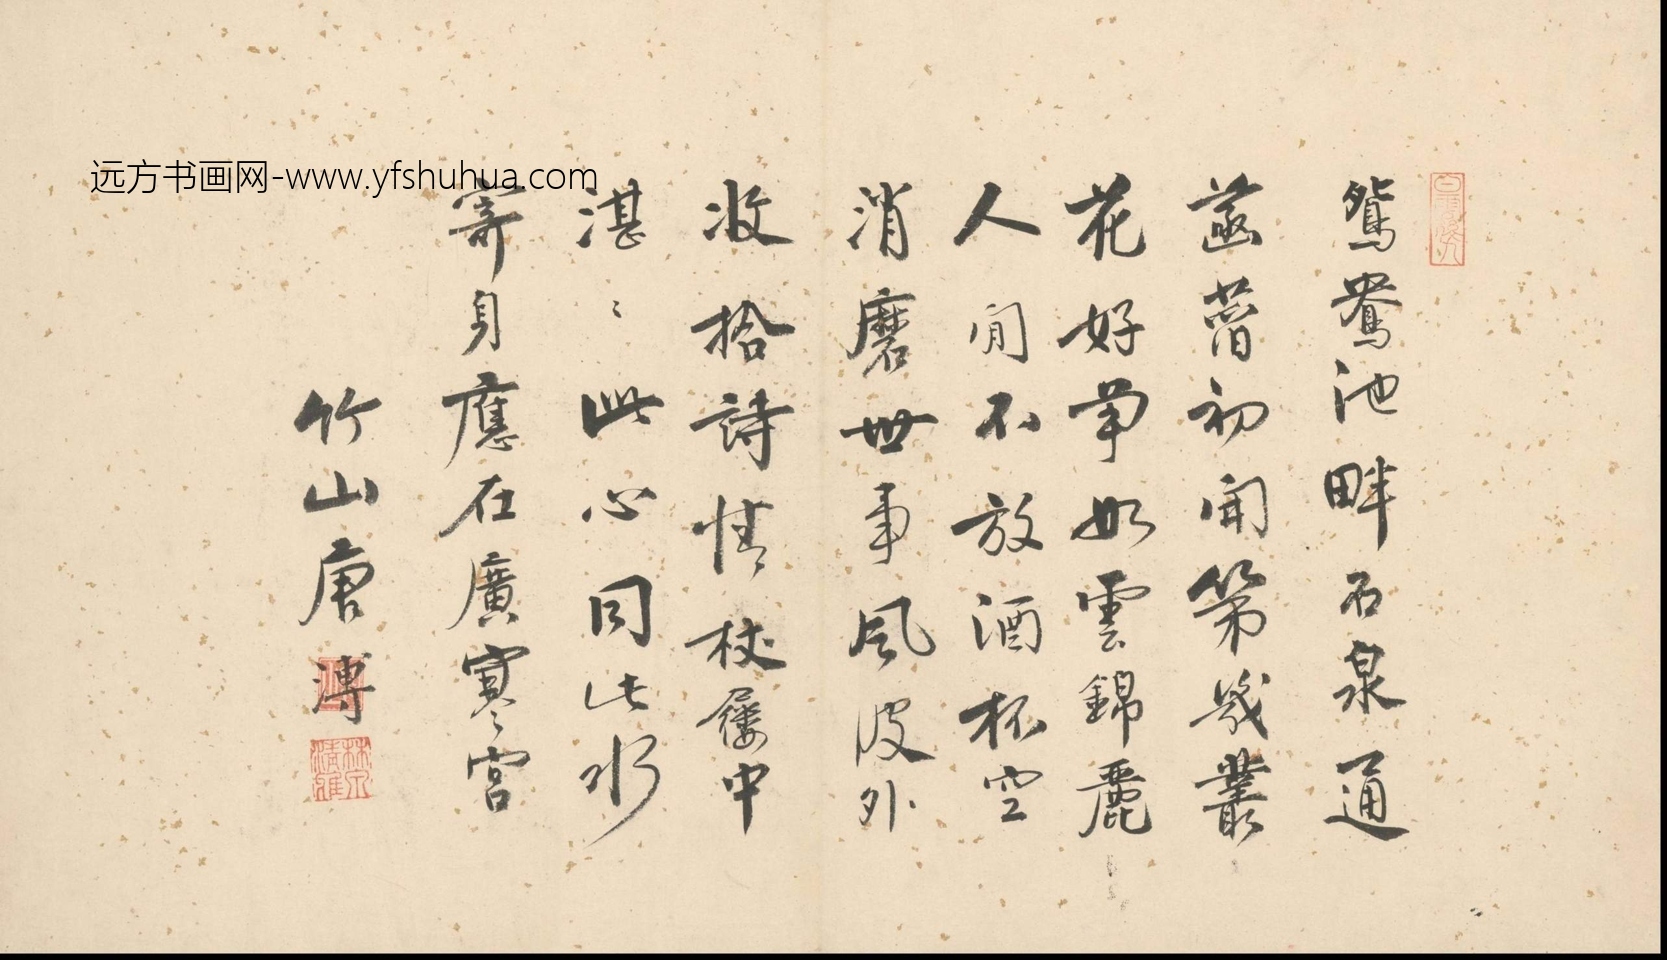 远方书画网-www.yfshuhua.com
鴛鴦池畔石泉通
菡萏初開第幾叢
花好爭如雲錦麗
人閒不放酒杯空
消磨世事風波外
收拾詩情杖屨中
湛〻此心同此水
寄身應在廣寒宮
竹山唐溥